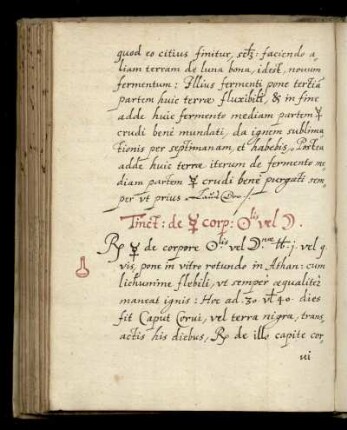 quod eo citius finitur, sctz: faciendo a,
liam terram de luna bona, idest, nouum
fermentum: Illius fermenti pone tertiã
partem huic terræ fluxibili, & in fine
adde huic fermento mediam partem ☿
crudi bene mundati, da ignem sublima
tionis per septimanam, et habebis. Postea
adde huic terræ iterum de fermento me,
diam partem ☿ crudi benè purgati sem,
per vt prius. Laus Deo.
Tinct: de ☿ corp: ☉lis vel ☽.
℞ ☿ de corpore ☉lis vel ☽næ ℔.j. vel q.
vis, pone in vitro rotundo in Athan: cum
lichinime flebili, vt semper æqualitèr
maneat ignis: Hoc ad. 30 vl 40. dies
fit Caput Corui, vel terra nigra, trans,
actis his diebus, ℞ de illo capite cor,
ui